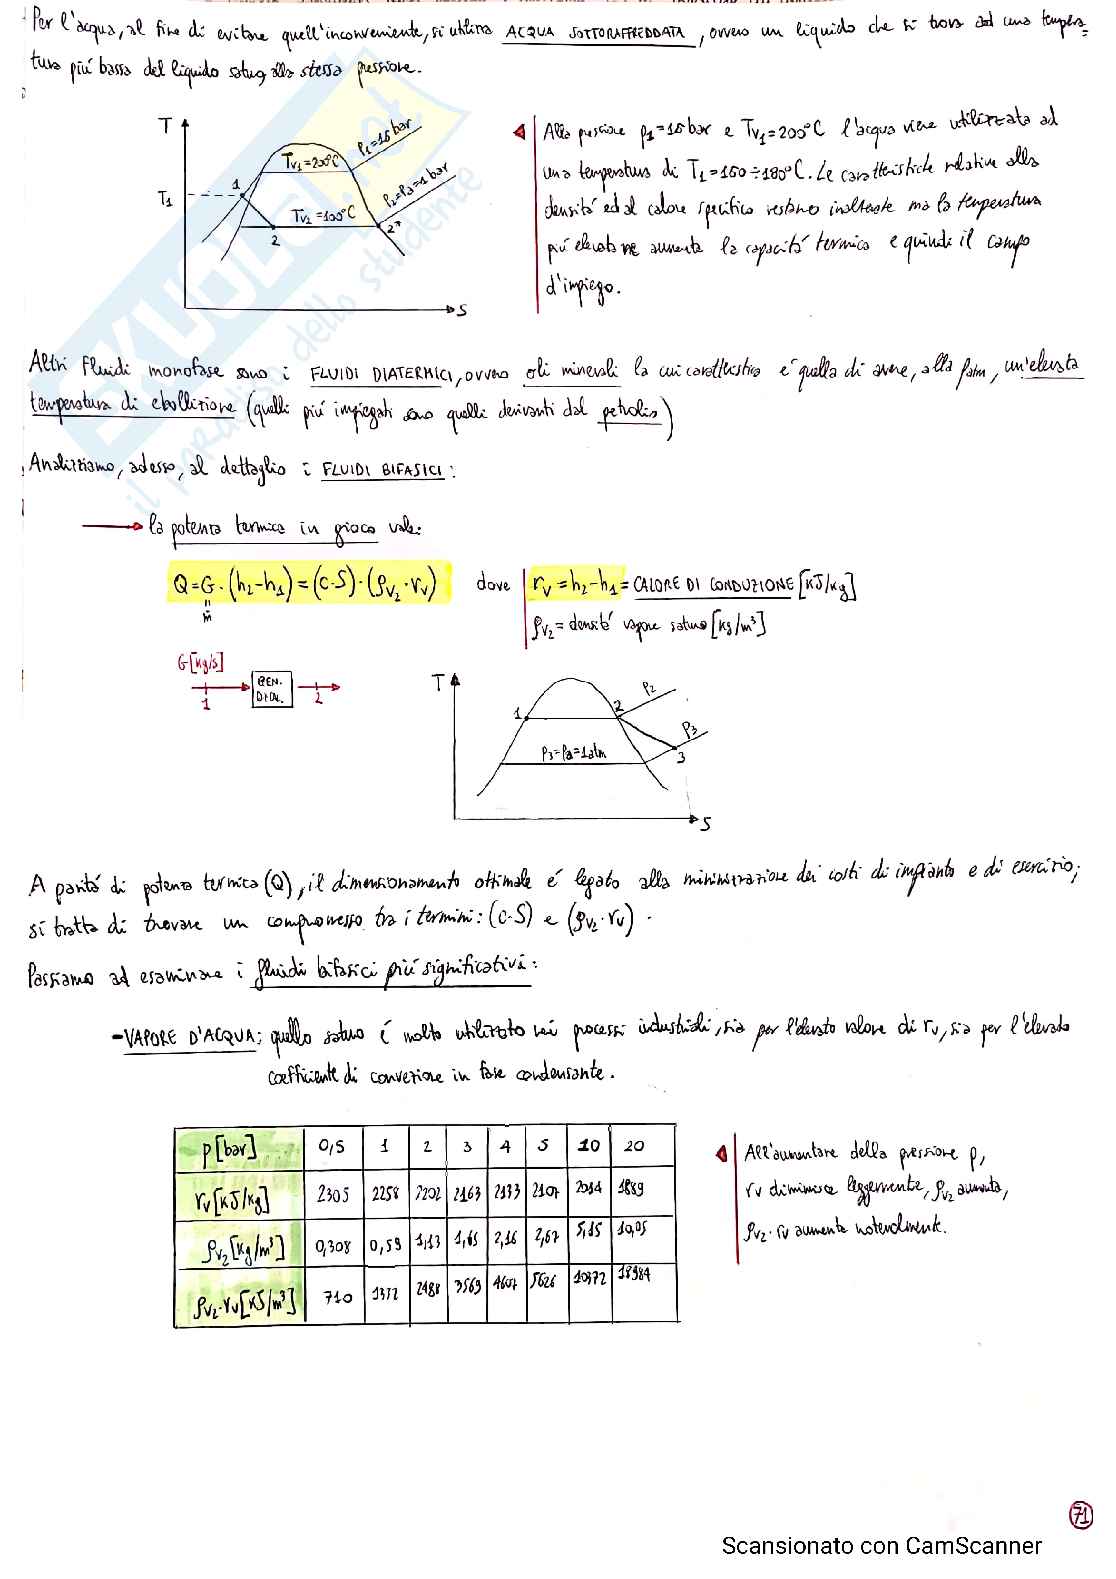 Per l'acqua, al fine di evitare quell'inconveniente, si utilizza ACQUA SOTTORAFFREDDATA, ovvero un liquido che si trova ad una tempera=
tura più bassa del liquido saturo alla stessa pressione.
T
T1
1
Tv1=200°C
P1=16bar
Tv2=100°C
P2=P3=1 bar
2
2*
S
Alla pressione p1=16bar e Tv1=200°C l'acqua viene utilizzata ad
una temperatura di T1=160÷180°C. Le caratteristiche relative alla
densità ed al calore specifico restano inalterate ma la temperatura
più elevata ne aumenta la capacità termica e quindi il campo
d'impiego.
Altri fluidi monofase sono i FLUIDI DIATERMICI, ovvero oli minerali la cui caratteristica è quella di avere, alla Patm, un'elevata
temperatura di ebollizione (quelli più impiegati sono quelli derivanti dal petrolio)
Analizziamo, adesso, al dettaglio i FLUIDI BIFASICI:
la potenza termica in gioco vale:
Q=G·(h2-h1)=(c·S)·(ρv2·rv) dove rv=h2-h1= CALORE DI CONDUZIONE [kJ/kg]
ṁ
ρv2=densità vapore saturo [kg/m³]
G[kg/s]
1
GEN.
2
T
1
2
P2
P3=Pa=1atm
P3
3
S
A parità di potenza termica (Q), il dimensionamento ottimale è legato alla minimizzazione dei costi di impianto e di esercizio;
si tratta di trovare un compromesso tra i termini: (c·S) e (ρv2·rv).
Passiamo ad esaminare i fluidi bifasici più significativi:
-VAPORE D'ACQUA: quello saturo è molto utilizzato nei processi industriali, sia per l'elevato valore di rv, sia per l'elevato
coefficiente di convezione in fase condensante.
p[bar] 0,5 1 2 3 4 5 10 20
rv[kJ/kg] 2305 2258 2202 2163 2133 2107 2014 1889
ρv2[kg/m³] 0,308 0,59 1,13 1,65 2,16 2,67 5,15 10,05
ρv2·rv[kJ/m³] 710 1332 2488 3569 4607 5626 10372 18984
All'aumentare della pressione p,
rv diminuisce leggermente, ρv2 aumenta,
ρv2·rv aumenta notevolmente.
71
Scansionato con CamScanner